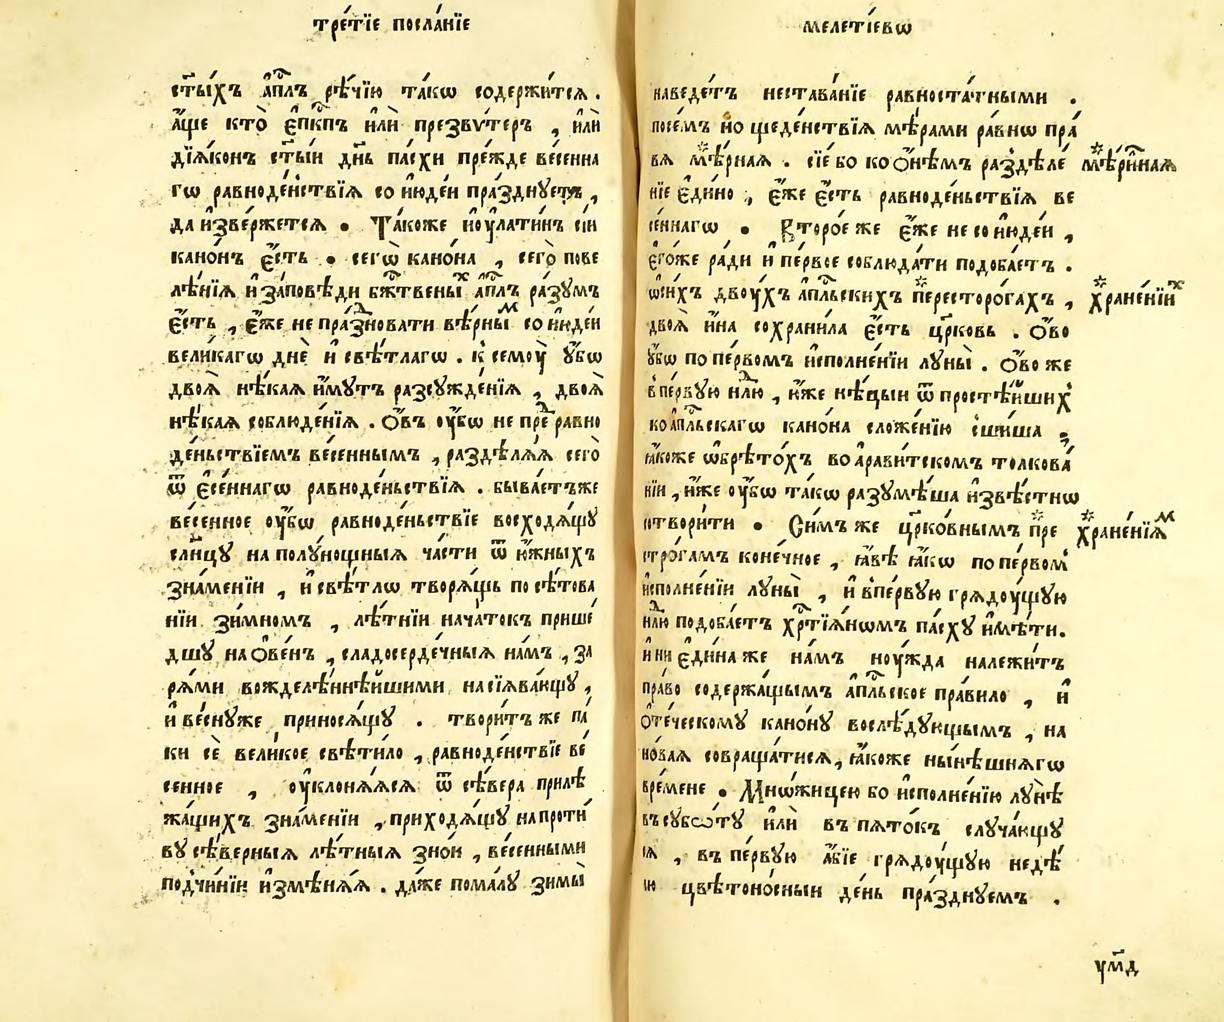 тре́тїе посла́нїе
ст҃ы́хъ а҆пⷭ҇лъ рѣ́чїю та́кѡ содержи́тсѧ .
а҆́ще кто̀ є҆пⷭ҇кпъ и҆лѝ презвѵ́теръ , и҆лѝ
дїѧ́конъ ст҃ы́и дн҃ь па́схи пре́жде весенна
гѡ равноде́нствїѧ со и҆ю҆де́и пра́зднуетъ ,
да и҆зве́ржетсѧ . Та́коже и҆ оу҆ лати́нъ сі́и
кано́нъ є҆́сть . сегѡ̀ кано́на , сего̀ пове
лѣ́нїѧ и҆ за́повѣди бж҃твены́ⷯ а҆пⷭ҇лъ ра́зумъ
є҆́сть , є҆́же не пра́зⷣновати вѣ́рныⷨ со и҆ю҆де́и
вели́кагѡ днѐ и҆ свѣ́тлагѡ . к семоу̀ оу҆́бѡ
двоѧ̀ нѣ́каѧ и҆́мутъ разсужде́нїѧ , двоѧ̀
нѣ́каѧ соблюде́нїѧ . О҆́въ оу҆́бѡ не преⷣ равно
де́ньствїемъ весе́ннымъ , раздѣлѧ́ѧ сего̀
ѿ є҆се́ннагѡ равноде́ньствїѧ . быва́етъже
весе́нное оу҆́бѡ равноде́ньствїе восходѧ́щу
сл҃нцу на полу́нощныѧ ча́сти ѿ ю҆́жныхъ
зна́менїи , и҆ свѣ́тлѡ творѧ́щь по сѣ́това
нїи зи́мномъ , лѣ́тнїи нача́токъ прише́
дшу на О҆ве́нъ , сладосерде́чныѧ на́мъ , за
рѧ́ми вожделѣ́ннѣйшими насїѧ́вающу ,
и҆ весну́же приносѧ́щу . твори́тъ же па́
ки сѐ вели́кое свѣти́ло , равноде́нствїе ве́
сенное , оу҆клонѧ́ѧсѧ ѿ сѣ́вера прилѣ
жа́щихъ зна́менїи , приходѧ́щу на проти́
ву сѣ́верныѧ лѣ́тныѧ зно́и , весе́нными
подчинїи и҆змѣнѧ́ѧ . да́же пома́лу зимы̀
меле́тїевѡ
наведе́тъ нестава́нїе равноста́тными .
посе́мъ и҆ о шеде́нствїѧ мѣ́рами ра́внѡ пра́
вѧ мѣ́рнаѧ . сїе́ бо ко О҆́нѣмъ раздѣле́
мѣ́рйнаѧ
нїе є҆ди́но , є҆́же є҆́сть равноде́ньствїѧ ве
се́ннагѡ . Второ́е же є҆́же не со и҆ю҆де́и ,
є҆го́же ра́ди и҆ пе́рвое соблюда́ти подоба́етъ .
ѡ҆ си́хъ двоу́хъ а҆пⷭ҇льскихъ пересторо́гахъ ,
хране́нїиⷯ
двоѧ̀ и҆́на сохрани́ла є҆́сть цр҃ковь . О҆́во
оу҆́бѡ по пе́рвомъ и҆сполне́нїи луны̀ . О҆́во же
в пе́рвую нⷣлю , и҆́же нѣ́цыи ѿ простѣ́йших
ко а҆пⷭ҇льскагѡ кано́на сложе́нїю сши́ша ;
ꙗ҆́коже ѡ҆брѣто́хъ во Аравитскомъ толкова́
нїи , и҆́же оу҆́бѡ та́кѡ разумѣ́ша и҆звѣ́стнѡ
сотвори́ти . Си́мъ же цр҃ко́внымъ пре
хране́нїѧⷨ
стро́гамъ коне́чное , ꙗ҆́вѣ ꙗ҆́кѡ по пе́рвом
и҆сполне́нїи луны̀ , и҆ в пе́рвую грѧдоу́щую
нⷣлю подоба́етъ хрⷭ҇тїѧ́нѡмъ па́сху и҆мѣ́ти .
и҆ ни є҆ди́на же на́мъ ноу́жда належи́тъ
пра́во содержа́щымъ а҆пⷭ҇льское пра́вило , и҆
О҆те́ческому кано́ну вослѣ́дующымъ , на
но́ваѧ совраща́тисѧ , ꙗ҆́коже ны́нѣшнѧгѡ
вре́мене . Мно́жицею бо и҆сполне́нїю лу́нѣ
въ субѡ́ту и҆лѝ въ пѧто́къ случа́ющу
сѧ , въ пе́рвую а҆́бїе грѧдоу́щую недѣ́
лю цвѣтоно́сныи де́нь пра́зднуемъ .
ум҃д